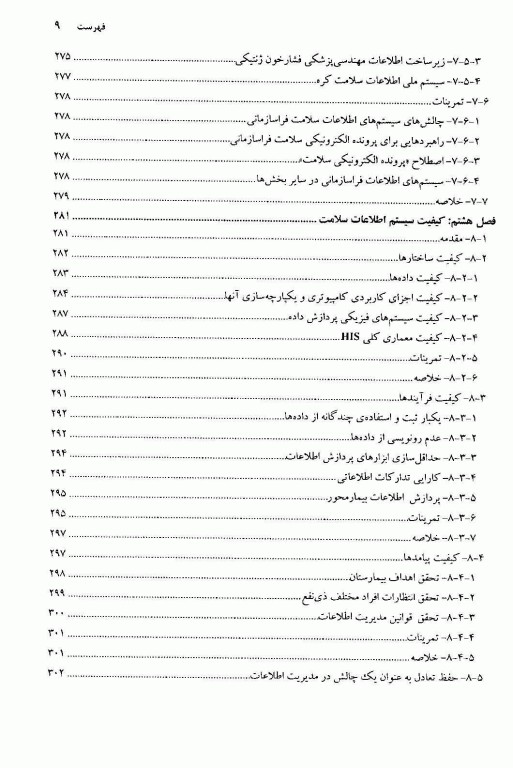 فهرست ۹
۷-۵-۳- زیرساخت اطلاعات مهندسی‌پزشکی فشارخون ژنتیکی ۲۷۵
۷-۵-۴- سیستم ملی اطلاعات سلامت کره ۲۷۷
۷-۶- تمرینات ۲۷۸
۷-۶-۱- چالش‌های سیستم‌های اطلاعات سلامت فراسازمانی ۲۷۸
۷-۶-۲- راهبردهایی برای پرونده الکترونیکی سلامت فراسازمانی ۲۷۸
۷-۶-۳- اصطلاح «پرونده الکترونیکی سلامت» ۲۷۸
۷-۶-۴- سیستم‌های اطلاعات فراسازمانی در سایر بخش‌ها ۲۷۸
۷-۷- خلاصه ۲۷۹
فصل هشتم: کیفیت سیستم اطلاعات سلامت ۲۸۱
۸-۱- مقدمه ۲۸۱
۸-۲- کیفیت ساختارها ۲۸۲
۸-۲-۱- کیفیت داده‌ها ۲۸۳
۸-۲-۲- کیفیت اجزای کاربردی کامپیوتری و یکپارچه‌سازی آنها ۲۸۴
۸-۲-۳- کیفیت سیستم‌های فیزیکی پردازش داده ۲۸۷
۸-۲-۴- کیفیت معماری کلی HIS ۲۸۸
۸-۲-۵- تمرینات ۲۹۰
۸-۲-۶- خلاصه ۲۹۱
۸-۳- کیفیت فرآیندها ۲۹۱
۸-۳-۱- یکبار ثبت و استفاده‌ی چندگانه از داده‌ها ۲۹۲
۸-۳-۲- عدم رونویسی از داده‌ها ۲۹۲
۸-۳-۳- حداقل‌سازی ابزارهای پردازش اطلاعات ۲۹۴
۸-۳-۴- کارایی تدارکات اطلاعاتی ۲۹۴
۸-۳-۵- پردازش اطلاعات بیمارمحور ۲۹۵
۸-۳-۶- تمرینات ۲۹۵
۸-۳-۷- خلاصه ۲۹۷
۸-۴- کیفیت پیامدها ۲۹۷
۸-۴-۱- تحقق اهداف بیمارستان ۲۹۸
۸-۴-۲- تحقق انتظارات افراد مختلف ذی‌نفع ۲۹۹
۸-۴-۳- تحقق قوانین مدیریت اطلاعات ۳۰۰
۸-۴-۴- تمرینات ۳۰۱
۸-۴-۵- خلاصه ۳۰۱
۸-۵- حفظ تعادل به عنوان یک چالش در مدیریت اطلاعات ۳۰۲